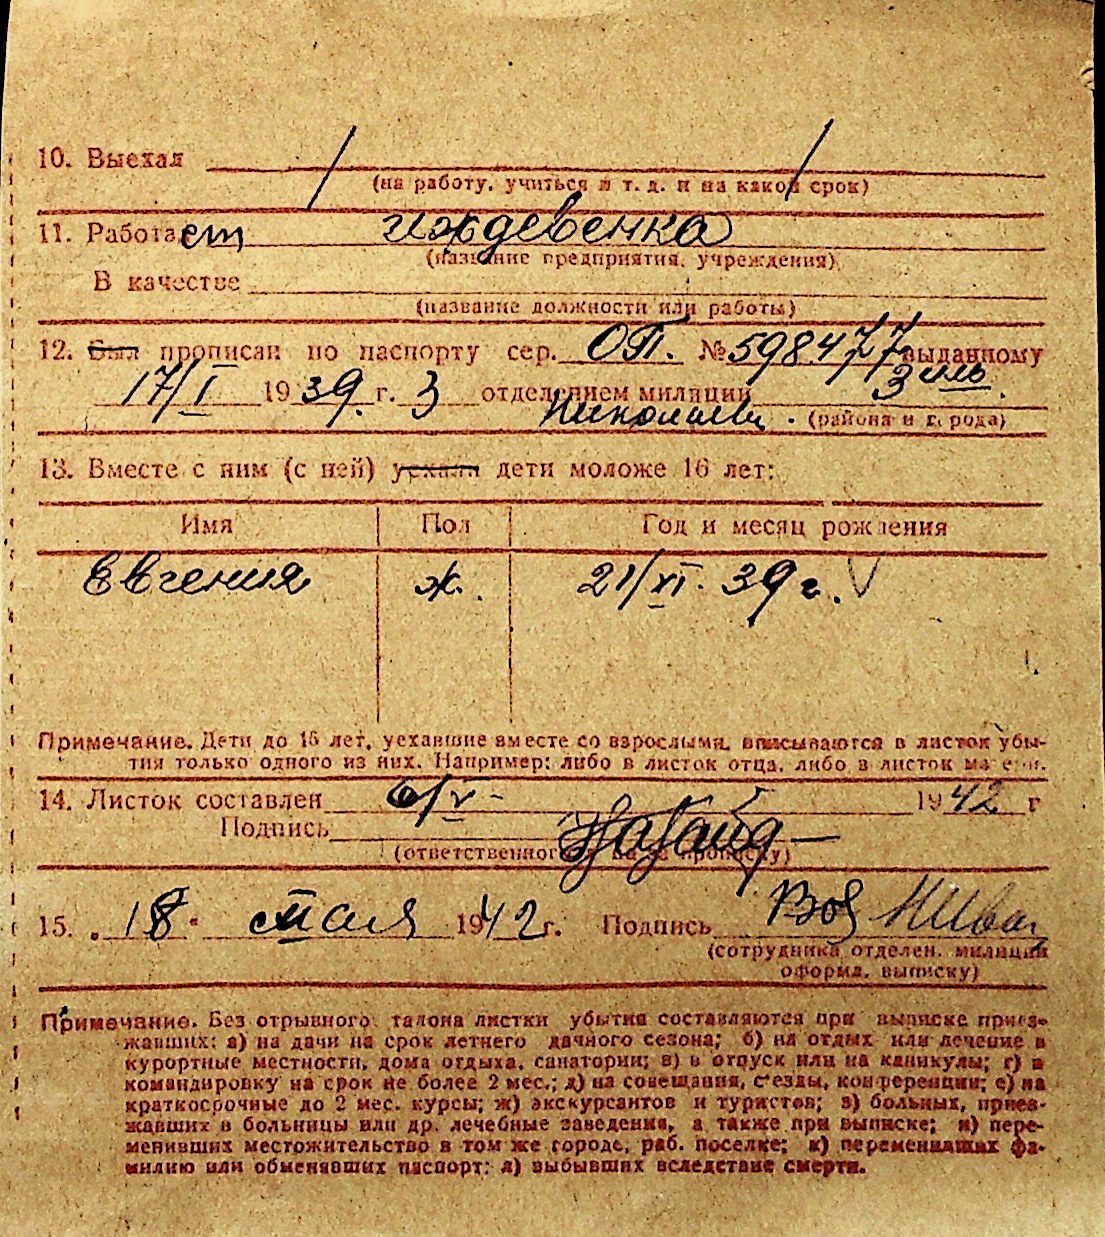 10. Выехал
(на работу, учиться и т. д. и на какой срок)
11. Работает иждевенка
(название предприятия, учреждения)
В качестве
(название должности или работы)
12. Был прописан по паспорту сер. ОП. № 598477 выданному
17/I 1939 г. 3 отделением милиции
Николаев. (района и города)
13. Вместе с ним (с ней) уехали дети моложе 16 лет:
Имя Пол Год и месяц рождения
Евгения ж. 21/VI. 39 г.
Примечание. Дети до 16 лет, уехавшие вместе со взрослыми, вписываются в листок убы-
тия только одного из них. Например: либо в листок отца, либо в листок матери.
14. Листок составлен 6/V- 1942 г
Подпись
(ответственного за прописку)
15. 18 мая 1942 г. Подпись
(сотрудника отделен. милиции
оформл. выписку)
Примечание. Без отрывного талона листки убытия составляются при выписке приез-
жавших: а) на дачи на срок летнего дачного сезона; б) на отдых или лечение в
курортные местности, дома отдыха, санатории; в) в отпуск или на каникулы; г) в
командировку на срок не более 2 мес.; д) на совещания, с'езды, конференции; е) на
краткосрочные до 2 мес. курсы; ж) экскурсантов и туристов; з) больных, приез-
жавших в больницы или др. лечебные заведения, а также при выписке; и) пере-
менивших местожительство в том же городе, раб. поселке; к) переменивших фа-
милию или обменявших паспорт; л) выбывших вследствие смерти.